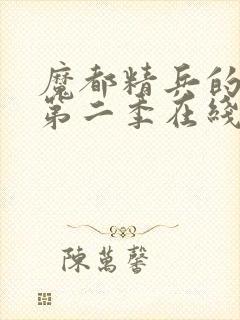 魔都精兵的
第二季在綫
陳萬馨